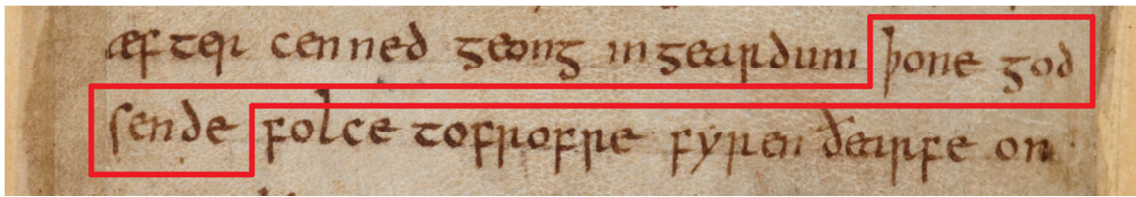 æfter cenned geong in geardum þone god
sende folce tofrofre fyren ðearfe on